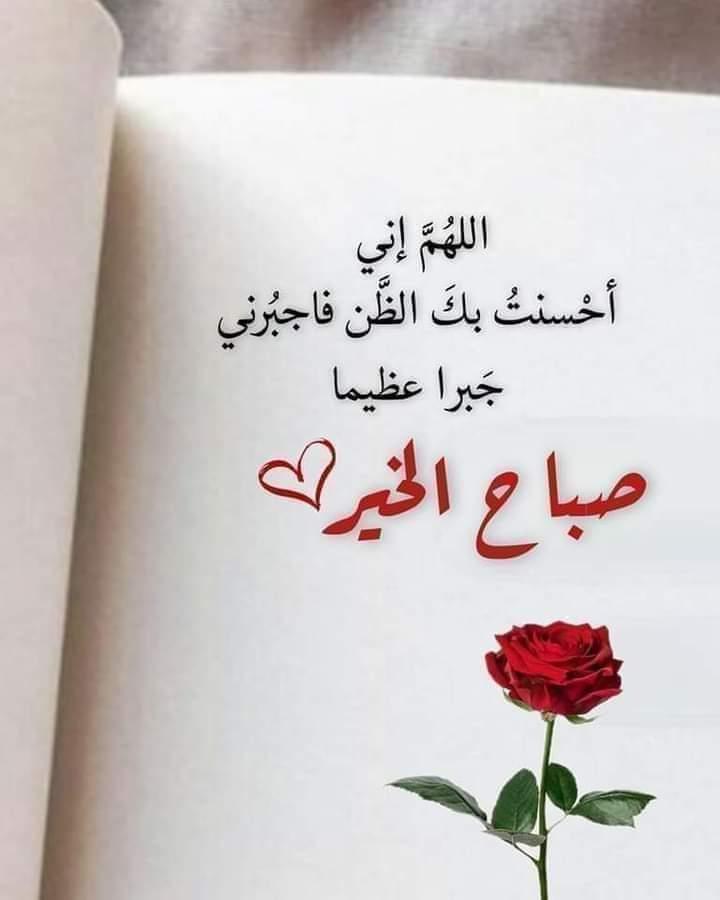 اللهُمَّ إني
أحْسنتُ بكَ الظَّن فاجبُرني
جَبرا عظيما
صباح الخير